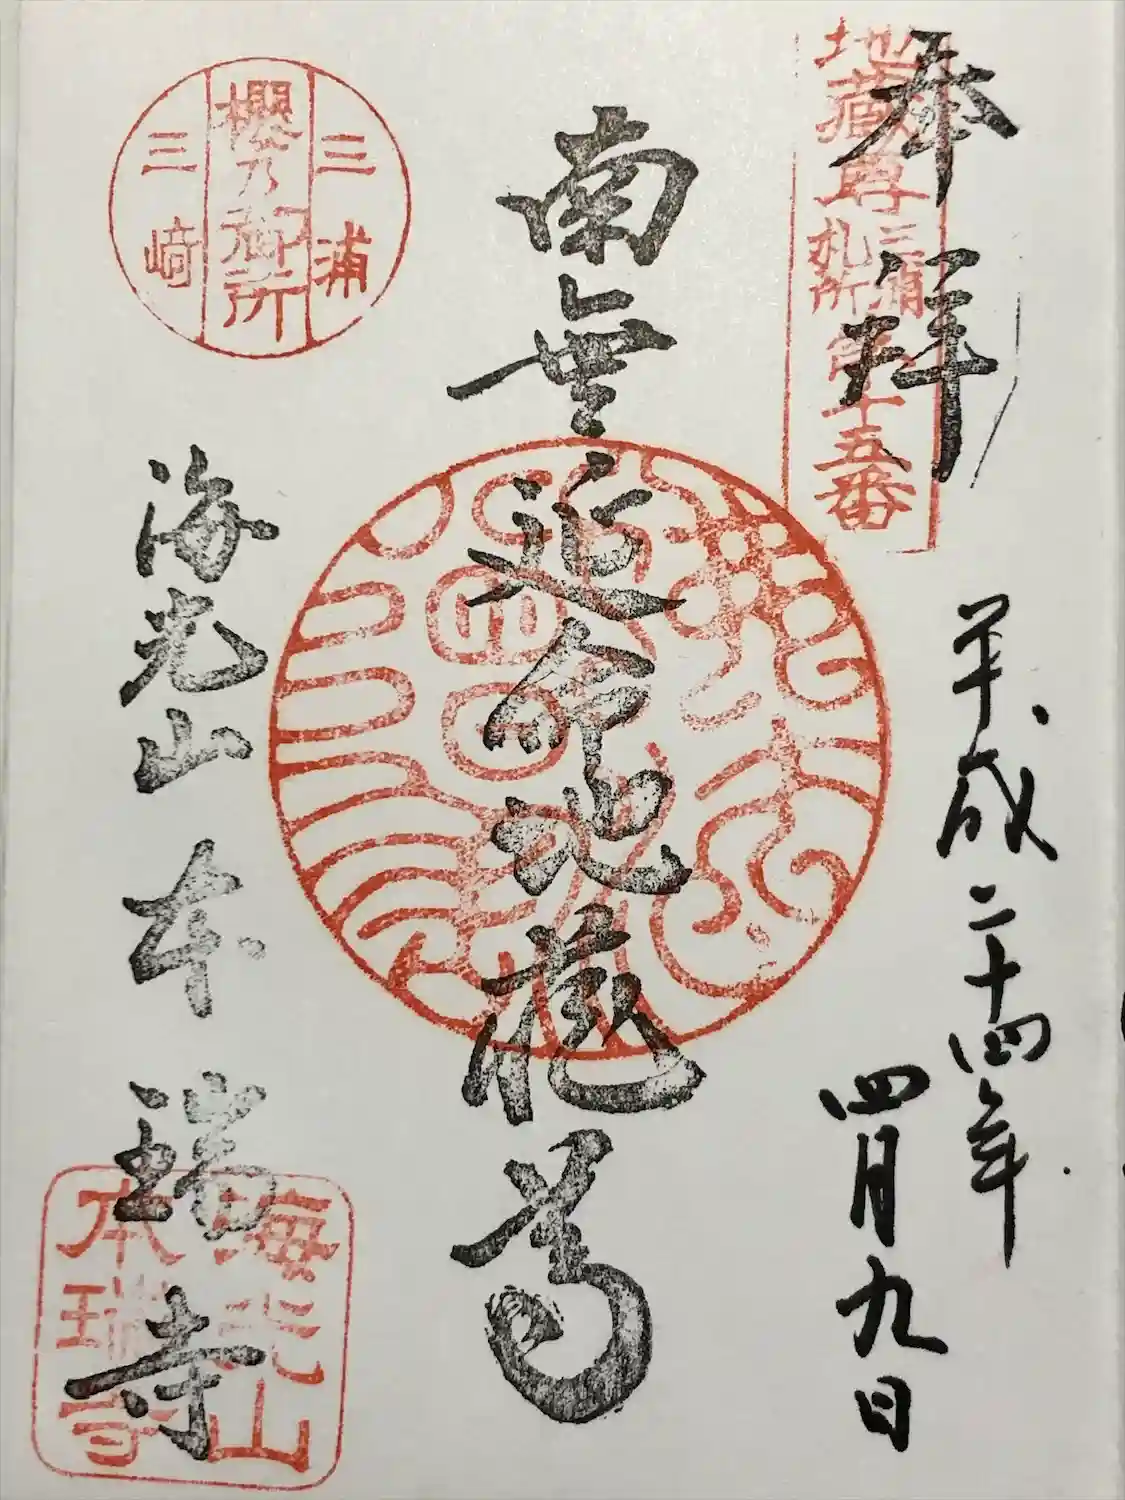 奉拝
地蔵尊
三浦
札所
第十五番
平成二十四年
四月九日
南無延命地蔵尊
三浦
櫻乃御所
三崎
海光山 本瑞寺
海光山
本瑞寺